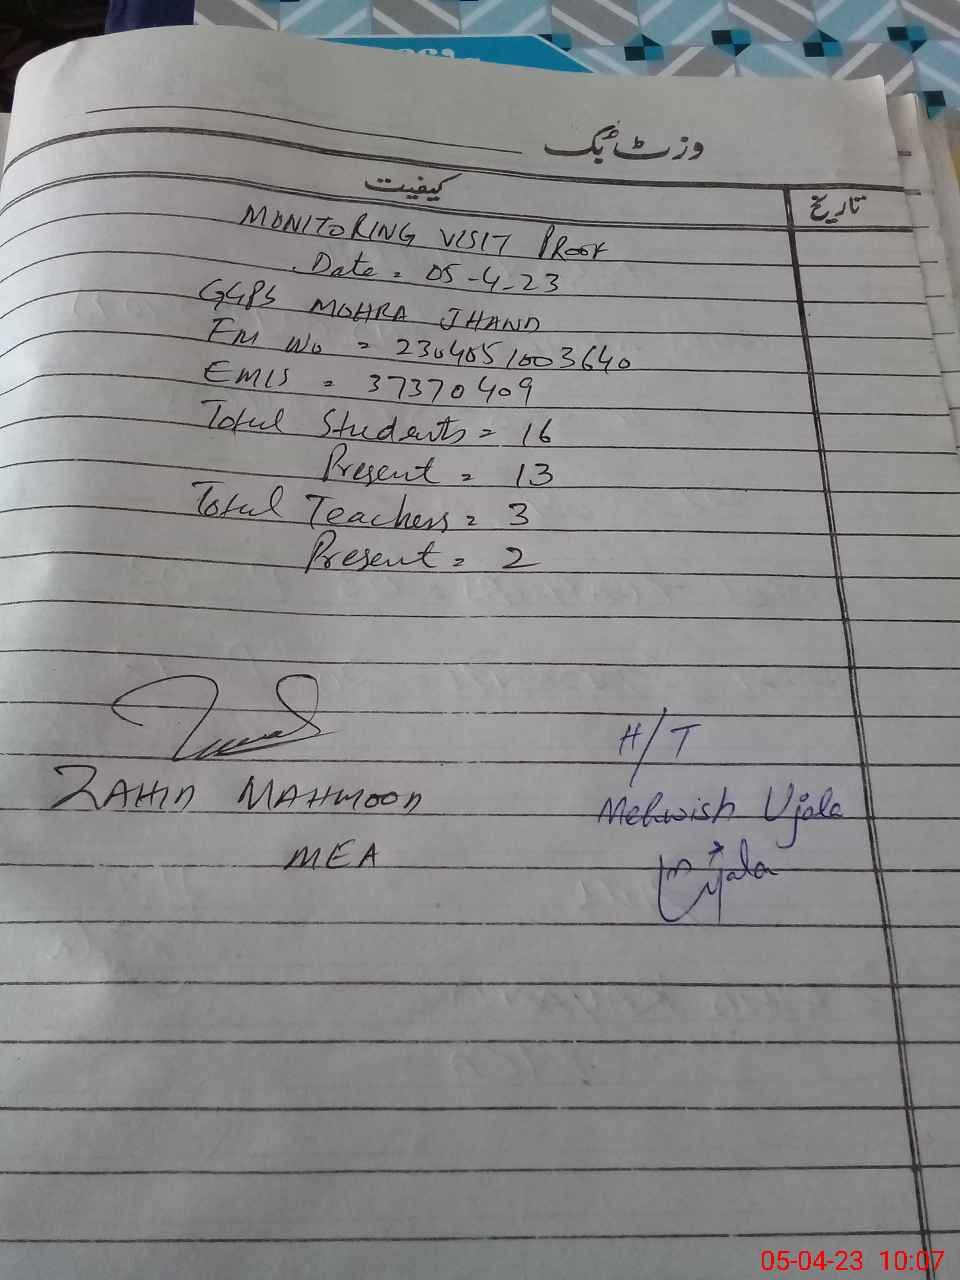 وزٹ بُک
کیفیت
تاریخ
MONITORING VISIT PROOF
Date = 05-4-23
GGPS MOHRA JHAND
FM No = 2304051003640
EMIS = 37370409
Total Students = 16
Present = 13
Total Teachers = 3
Present = 2
H/T
ZAHID MAHMOOD
Mehwish Ujala
MEA
Ujala
05-04-23 10:07